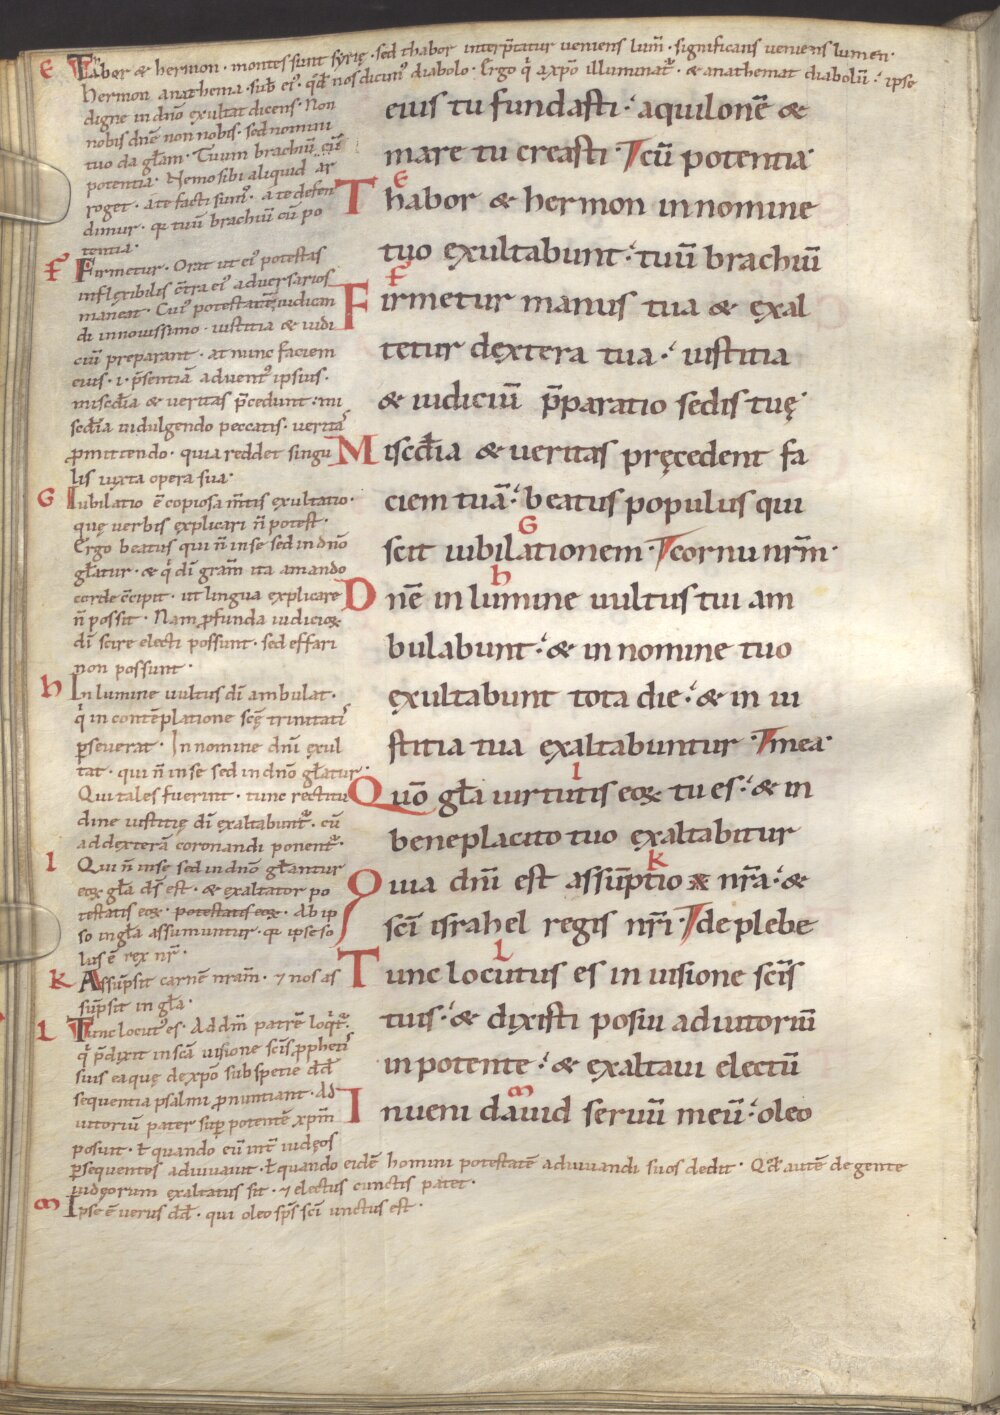 E Tabor & hermon · montes sunt syrię · sed thabor interp̄tatur ueniens lum̄ · significans ueniens lumen ·
hermon anathema · sub eı᷒ · qd̄ nos dicim᷒ diabolo · Ergo q' a xp̄o illuminat᷑ · & anathemat diabolū · ipse
digne in dn̄o exultat dicens · Non
nobis dn̄e non nobis · sed nomini
tuo da gl̄am · Tuum brachiū cū
potentia · Nemo sibi aliquid ar
roget · a te facti sum᷒ · a te defen
dimur · qr tuū brachiū cū po
tentia ·
F Firmetur · Orat ut eı᷒ potestas
inflexibilis c̄tra eı᷒ aduersarios
maneat · Cuı᷒ potestatē iudican
di in nouissimo · iustitia & iudi
ciū preparant · at nunc faciem
eius · i · p̄sentiā aduent᷒ ipsius ·
misc̄dia & ueritas p̄cedunt · mi
sc̄dia indulgendo peccatis · uerita'
p̄mittendo · quia reddet singu
lis iuxta opera sua ·
G Iubilatio ē copiosa m̄tis exultatio ·
quę uerbis explicari n̄ potest ·
Ergo beatus qui n̄ in se sed in dn̄o
gl̄atur · & q' dī gram̄ ita amando
corde c̄cipit · ut lingua explicare
n̄ possit · Nam p̄funda iudicioꝝ
dī scire electi possunt · sed effari
non possunt ·
h In lumine uultus dī ambulat ·
q' in contēplatione scę̄ trinitati'
p̄seuerat · In nomine dn̄i exul
tat · qui n̄ in se sed in dn̄o gl̄atur ·
Qui tales fuerint · tunc rectitu
dine iustitię dī exaltabunt᷑ · cū
ad dexterā coronandi ponent᷑ ·
I Qui n̄ in se sed in dn̄o gl̄antur
eoꝝ gl̄a ds̄ est · & exaltator po
testatis eoꝝ · potestatis eoꝝ · Ab ip
so in gl̄a assumuntur · qr ipse so
lus ē rex nr̄ ·
K Assūpsit carnē nram̄ · ⁊ nos as
sūpsit in gl̄a ·
L Tunc locut᷒ es · Ad dm̄ patrē loq't᷑ ·
q' p̄dixit in scā uisione scīs p̄pheti'
suis ea quę de xp̄o sub specie dd̄
sequentia psalmi p̄nuntiant · Ad
iutoriū pater sup̄ potentē xpm̄
posuit · ł quando eū int̄ iudęos
p̄sequentes adiuuauit · ł quando eidē homini potestatē adiuuandi suos dedit · Qd̄ autē de gente
iudęorum exaltatus sit · ⁊ electus cunctis patet ·
M Ipse ē uerus dd̄ · qui oleo sp̄s scī unctus est ·
eius tu fundasti · aquilonē &
mare tu creasti · T cū potentia ·
E
Thabor & hermon in nomine
tuo exultabunt · tuū brachiū
F
Firmetur manus tua & exal
tetur dextera tua · iustitia
& iudiciū p̄paratio sedis tuę ·
Misc̄dia & ueritas pręcedent fa
ciem tuā · beatus populus qui
G
scit iubilationem · T cornu nrm̄ ·
h
Dnē in lumine uultus tui am
bulabunt · & in nomine tuo
exultabunt tota die · & in iu
stitia tua exaltabuntur · T mea ·
I
Quō gl̄a uirtutis eoꝝ tu es · & in
beneplacito tuo exaltabitur
K
Quia dn̄i est assūptio nrā · &
scī israhel regis nrī · T de plebe
L
Tunc locutus es in uisione scīs
tuis · & dixisti posui adiutoriū
in potente · & exaltaui electū
M
Inueni dauid seruū meū · oleo